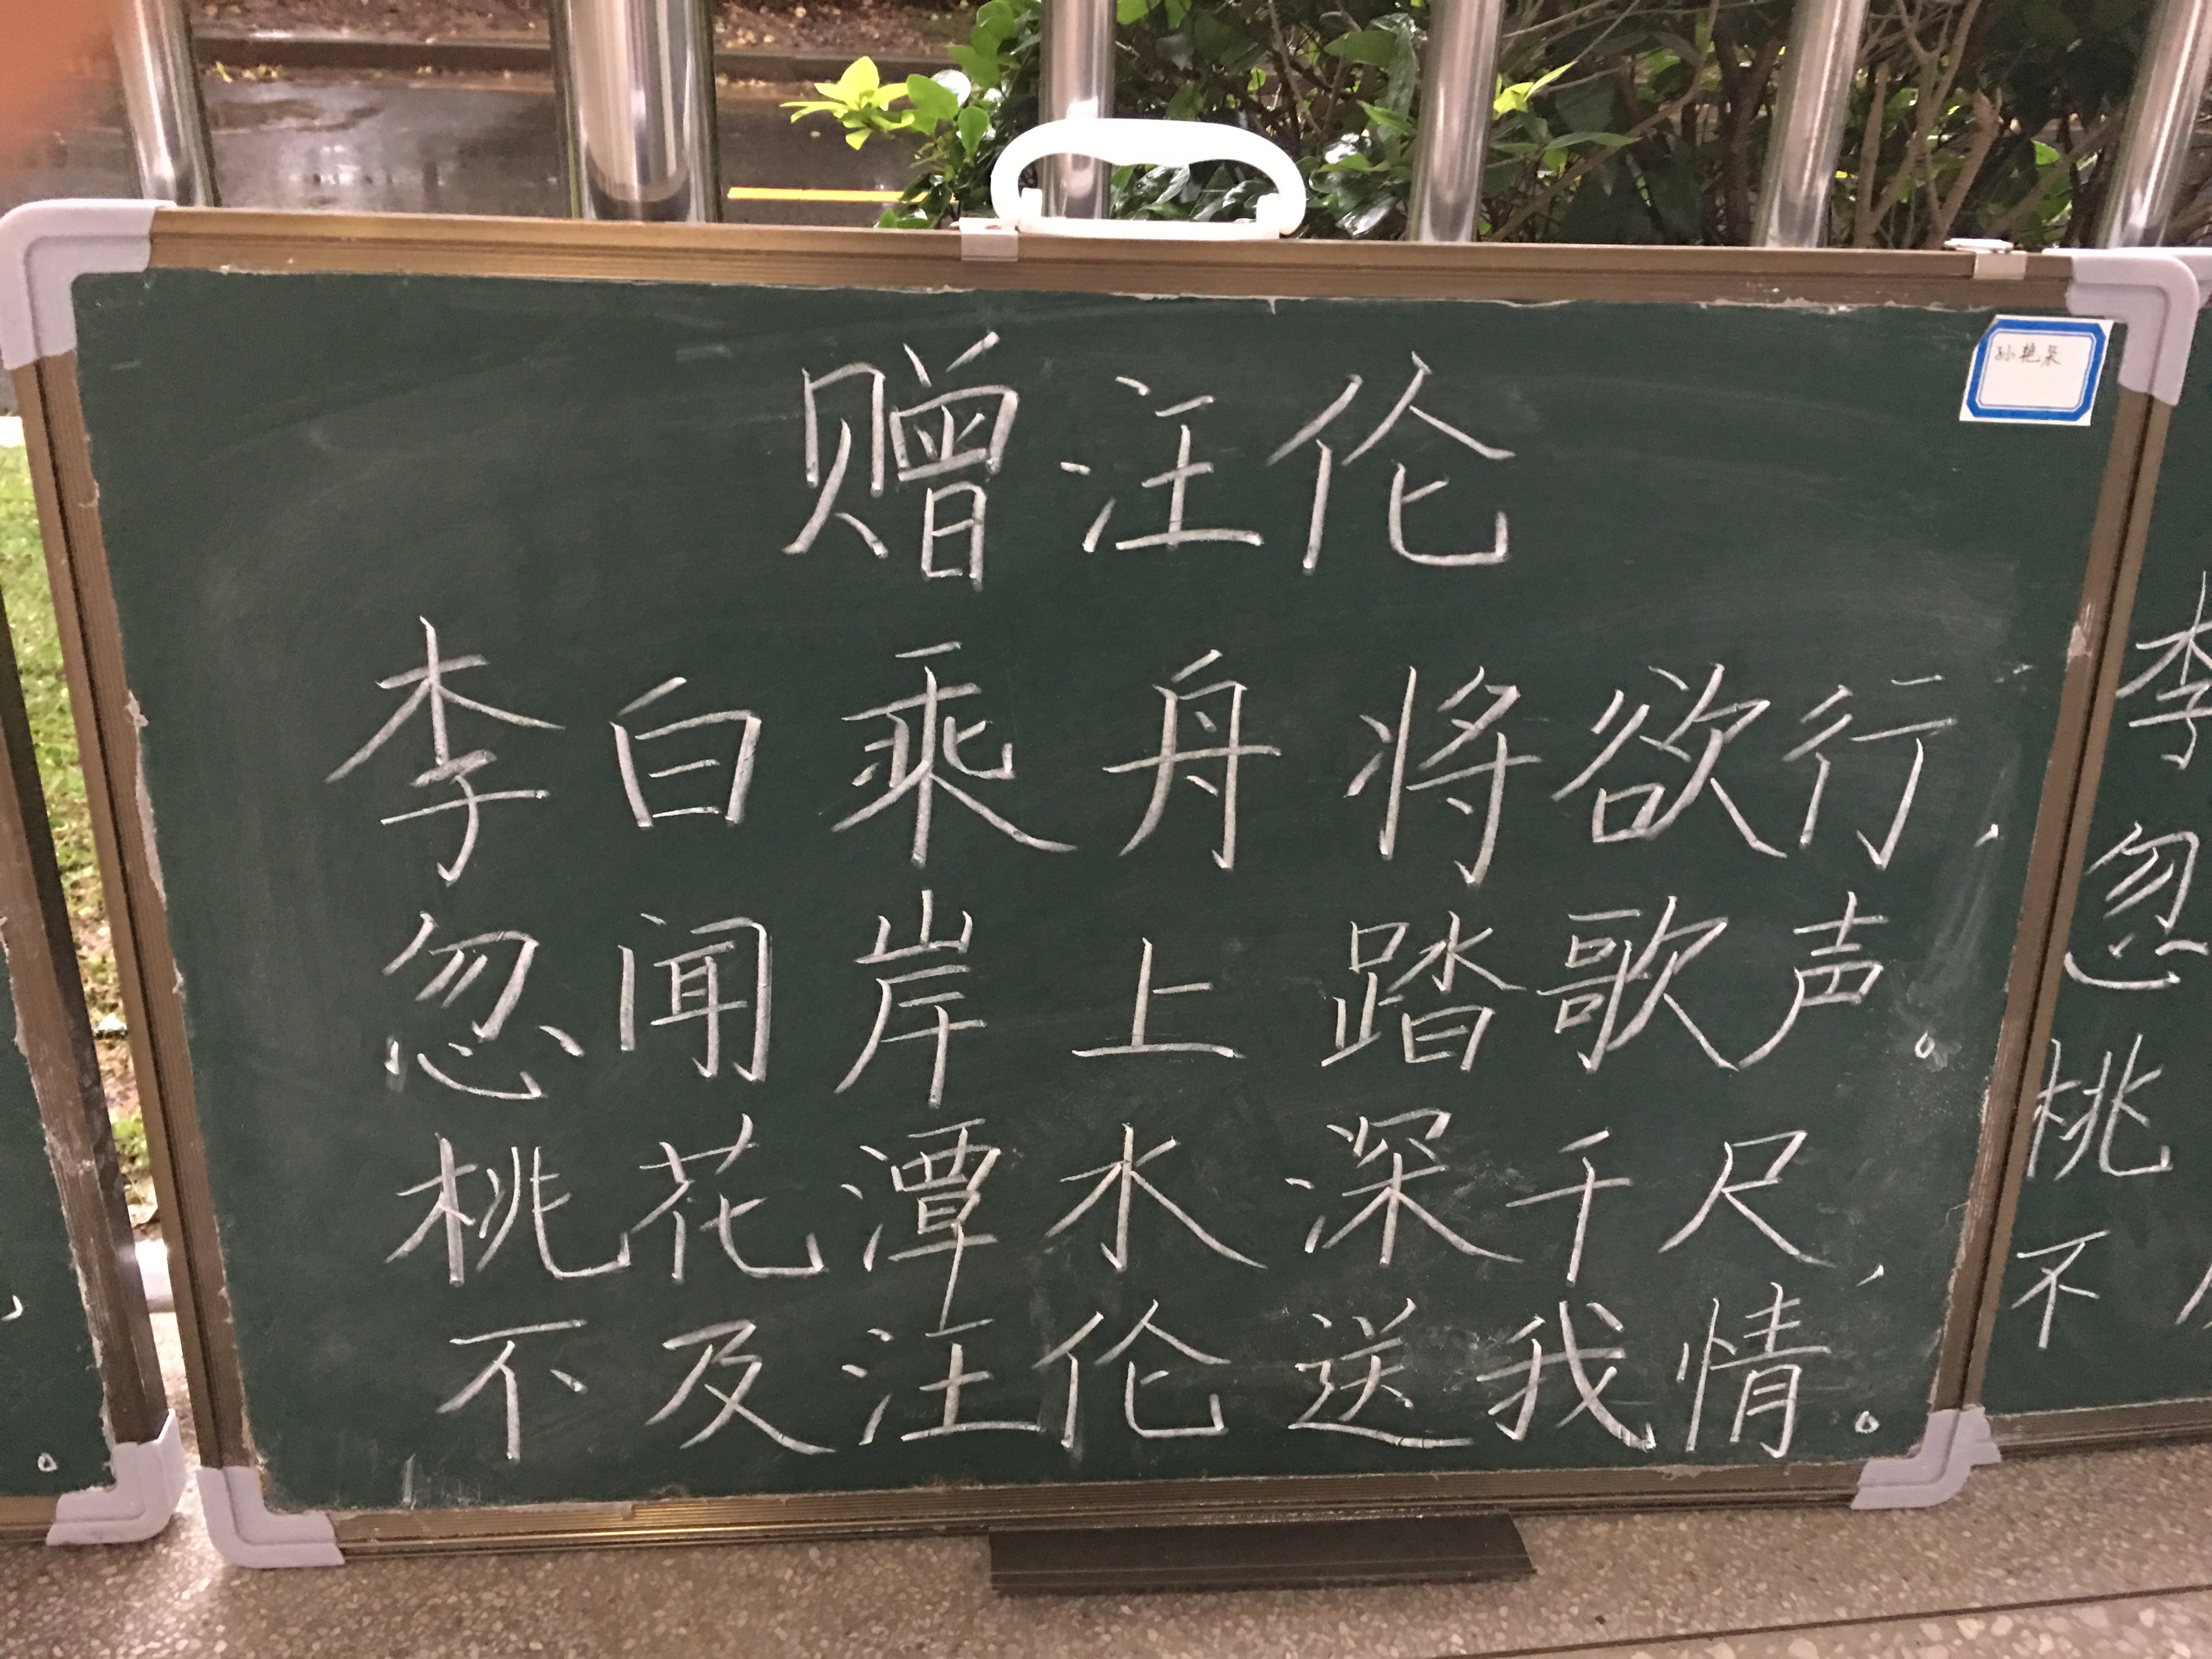 赠汪伦
孙艳
李白乘舟将欲行,
忽闻岸上踏歌声。
桃花潭水深千尺,
不及汪伦送我情。
李
忽
桃
不